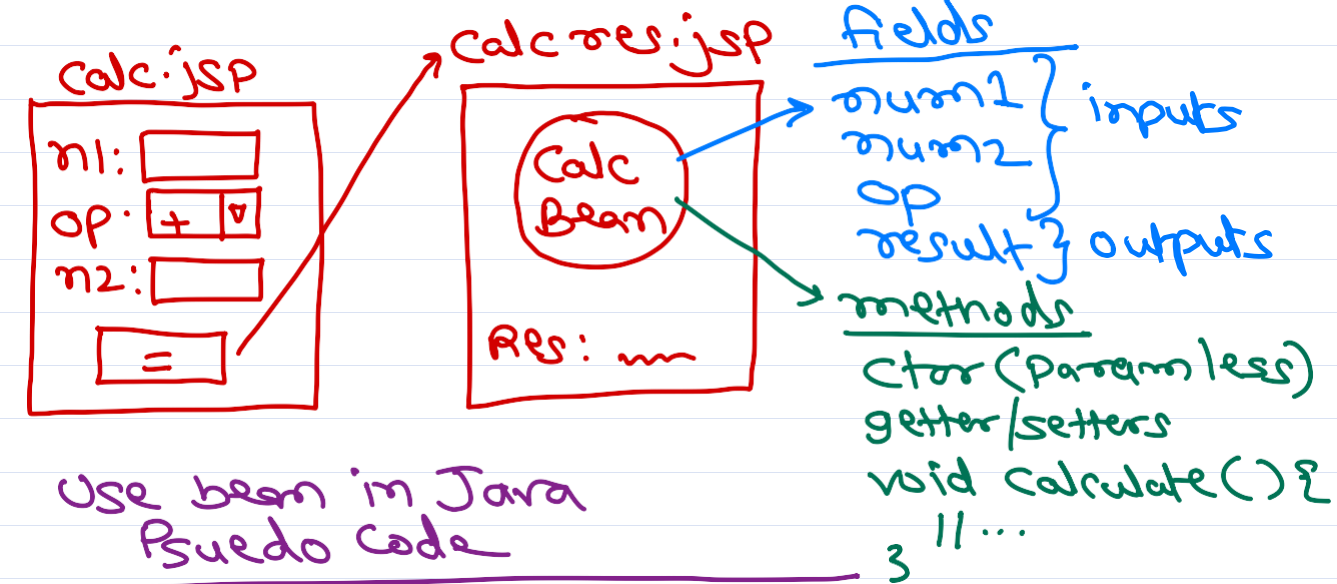 calc.jsp
n1:
op: + ▽
n2:
=
calcres.jsp
Calc
Bean
Res:
fields
num1
num2
op
} inputs
result } outputs
methods
ctor (Paramless)
getter/setters
void calculate() {
//...
}
Use bean in Java
Psuedo Code